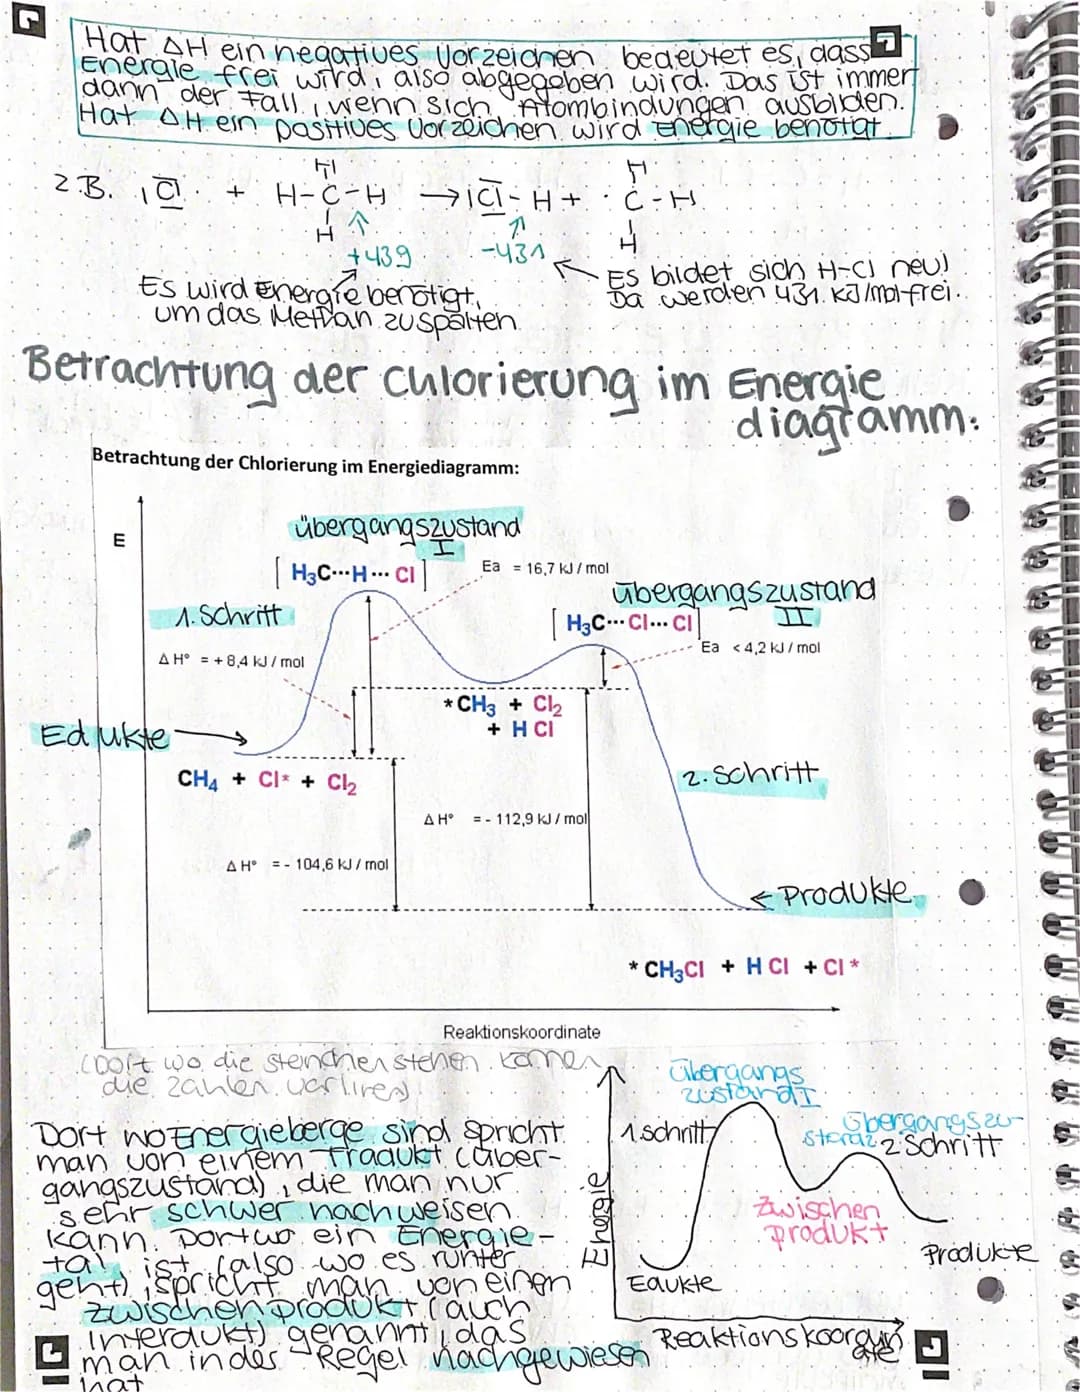 Hat ΔH ein negatives Vorzeichen bedeutet es, dass
Energie frei wird, also abgegeben wird. Das ist immer
dann der Fall, wenn sich Atombindungen ausbilden.
Hat ΔH ein positives Vorzeichen wird Energie benötigt.
z.B. |Cl· + H-C-H → |Cl-H + ·C-H
H H
H H
+439 -431
Es wird Energie benötigt,
um das Methan zu spalten.
Es bildet sich H-Cl neu!
Da werden 431 kJ/mol frei.
Betrachtung der Chlorierung im Energie
diagramm:
Betrachtung der Chlorierung im Energiediagramm:
E
übergangszustand
I
[H₃C···H···Cl]
Ea = 16,7 kJ / mol
übergangszustand
II
1. Schritt
[H₃C···Cl···Cl]
Ea < 4,2 kJ / mol
Δ H° = + 8,4 kJ / mol
*CH₃ + Cl₂
+ H Cl
Edukte
CH₄ + Cl* + Cl₂
2. Schritt
Δ H° = - 112,9 kJ / mol
Δ H° = - 104,6 kJ / mol
← Produkte
* CH₃Cl + H Cl + Cl *
Reaktionskoordinate
(Dort wo die steinchen stehen. komen
die zahlen verliren)
Dort wo Energieberge sind spricht
man von einem Tradukt (über-
gangszustand), die man nur
sehr schwer nachweisen
kann. Dort wo ein Energie-
tal ist (also wo es runter
geht), spricht man von einen
zwischenprodukt (auch
Interdukt) genannt, das
man in der Regel nachgewiesen
hat
Energie
1. schritt
übergangs
zustand I
übergangszu-
stand 2
2 Schritt
Zwischen
produkt
Produkte
Edukte
Reaktionskoordin
ate